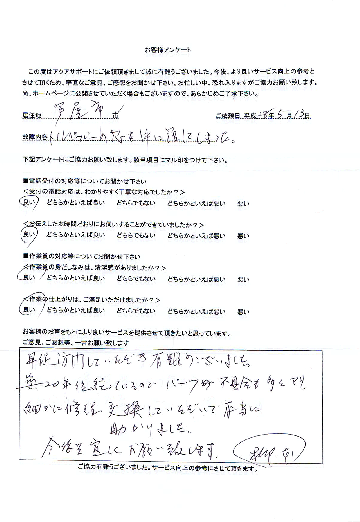 お客様アンケート
この度はアクアサポートにご依頼頂きまして誠に有難うございました。今後、より良いサービス向上の参考と
させて頂くため、率直なご意見、ご感想をお聞かせ下さい。お忙しい中、恐れ入りますがご協力お願い致します。
尚、ホームページに公開させていただく場合もございますので、あらかじめご了承下さい。
居住地 芦屋 市 ご依頼日 平成
故障内容
下記アンケートにご協力お願い致します。該当項目にマル印をつけて下さい。
■電話受付の対応等についてお聞かせ下さい
<受付の電話対応は、わかりやすく丁寧な対応でしたか?>
良い どちらかといえば良い どちらでもない どちらかといえば悪い 悪い
<お伝えしたお時間どおりにお伺いすることができていましたか?>
良い どちらかといえば良い どちらでもない どちらかといえば悪い 悪い
■作業員の対応等についてお聞かせ下さい
<作業員の身だしなみは、清潔感がありましたか?>
良い どちらかといえば良い どちらでもない どちらかといえば悪い 悪い
<作業の仕上がりは、ご満足いただけましたか?>
良い どちらかといえば良い どちらでもない どちらかといえば悪い 悪い
お客様のお声をもとにより良いサービスを提供させて頂きたいと思っています。
ご意見、ご感想等、一言お願い致します
訪問していただき有難うございました。
パーツの不具合も多く
細かに修理、交換していただいて本当に
助かりました。
今後も宜しくお願い致します。
ご協力有難うございました。サービス向上の参考にさせて頂きます。